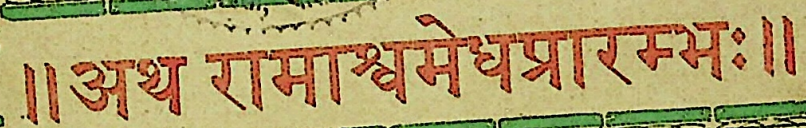 ॥अथ रामाश्वमेधप्रारम्भः॥